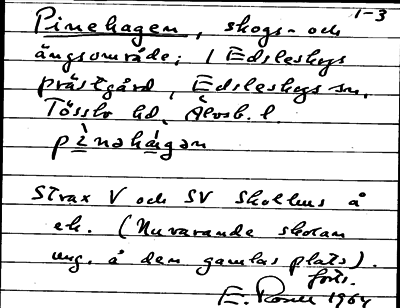 1-3
Pinehagen, skogs- och
ängsområde; i Edsleskogs
prästgård, Edsleskogs sn.
Tössbo hd, Älvsb. l.
pìnəhàgən
Strax V och SV skolhus å
ek. (Nuvarande skolan
ung. å den gamlas plats).
forts.
E. Rosell 1964